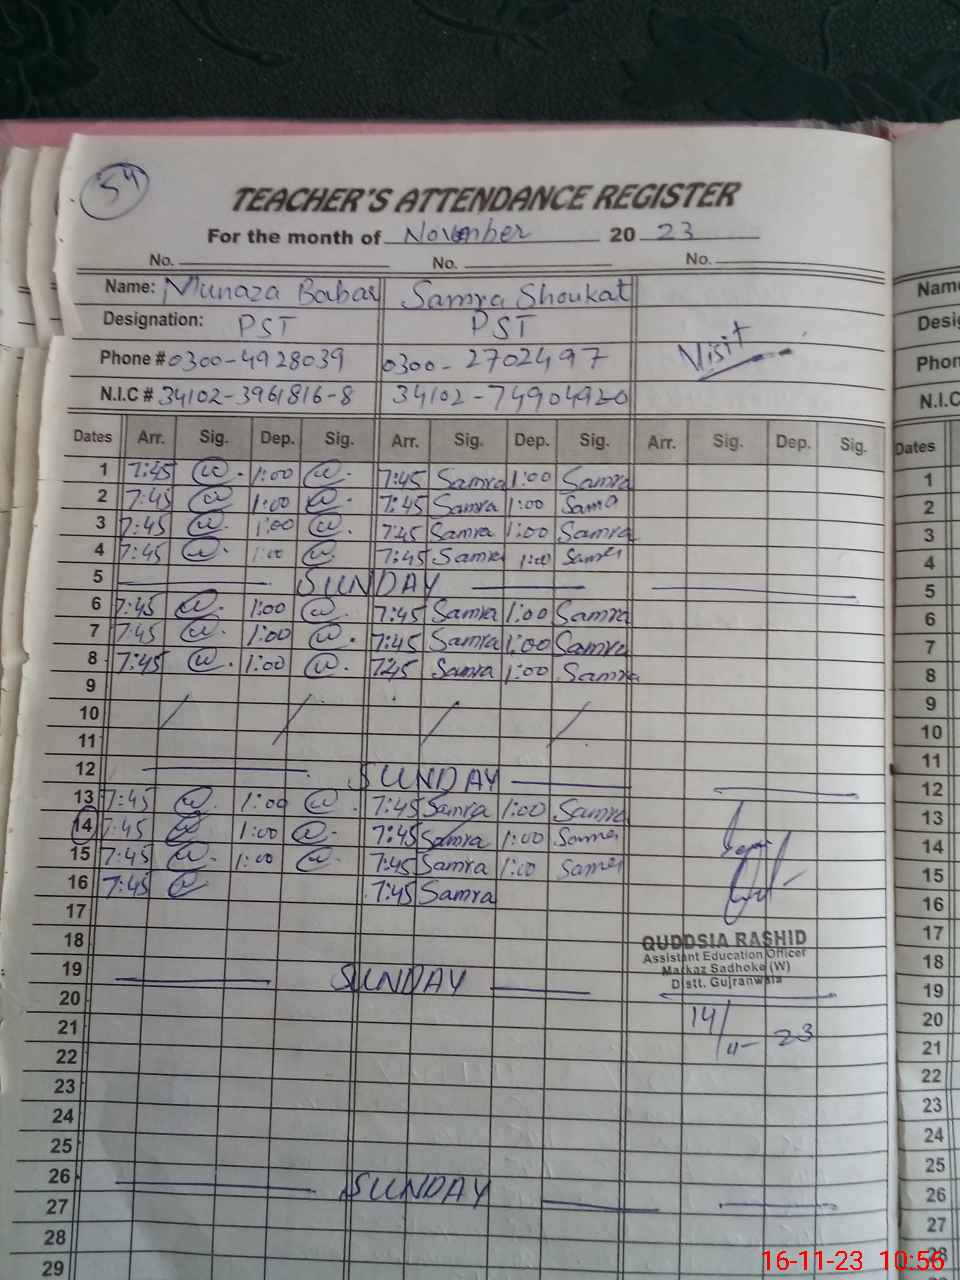 54
TEACHER'S ATTENDANCE REGISTER
For the month of November 20 23
No. No. No.
Name: Munaza Babar Samra Shoukat Name
Designation: PST PST Desig
Phone # 0300-4928039 0300-2702497 Visit Phon
N.I.C # 34102-3961816-8 34102-74904920 N.I.C
Dates Arr. Sig. Dep. Sig. Arr. Sig. Dep. Sig. Arr. Sig. Dep. Sig. Dates
1 7:45 1:00 7:45 Samra 1:00 Samra 1
2 7:45 1:00 7:45 Samra 1:00 Sama 2
3 7:45 1:00 7:45 Samra 1:00 Samra 3
4 7:45 1:00 7:45 Samra 1:00 Samra 4
5 SUNDAY 5
6 7:45 1:00 7:45 Samra 1:00 Samra 6
7 7:45 1:00 7:45 Samra 1:00 Samra 7
8 7:45 1:00 7:45 Samra 1:00 Samra 8
9 9
10 10
11 11
12 SUNDAY 12
13 7:45 1:00 7:45 Samra 1:00 Samra 13
14 7:45 1:00 7:45 Samra 1:00 Samra 14
15 7:45 1:00 7:45 Samra 1:00 Samra 15
16 7:45 7:45 Samra 16
17 17
18 QUDDSIA RASHID 18
Assistant Education Officer
Markaz Sadhoke (W)
19 SUNDAY Distt. Gujranwala 19
20 20
21 14/11-23 21
22 22
23 23
24 24
25 25
26 SUNDAY 26
27 27
28 28
29
16-11-23 10:56